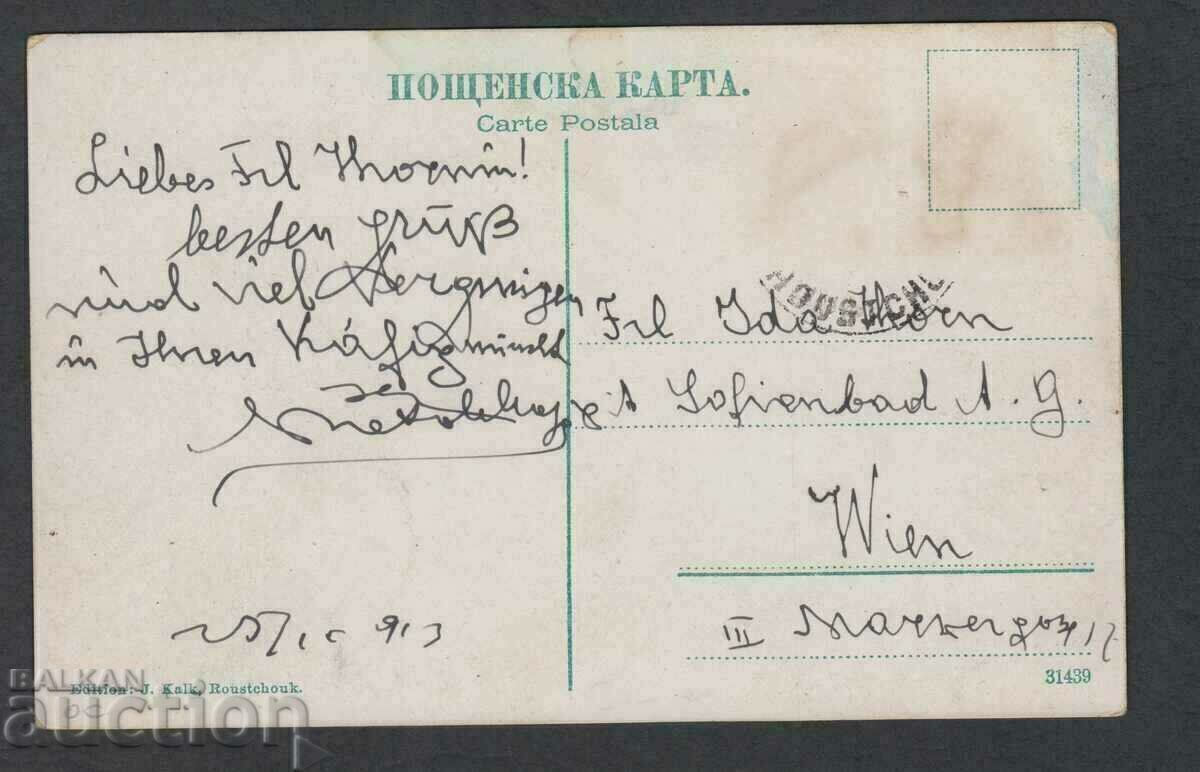 ПОЩЕНСКА КАРТА.
Carte Postala
Liebes Frl Thornin!
besten grüß
und viel Vergnügen
in Ihnen Käfig wünscht
ROUSTCHOU
Frl Ida Thorn
Sofienbad A. G.
Wien
III Marxergasse 17
25/IX 913
Edition: J. Kalk, Roustchouk.
31439
BALKAN
auction